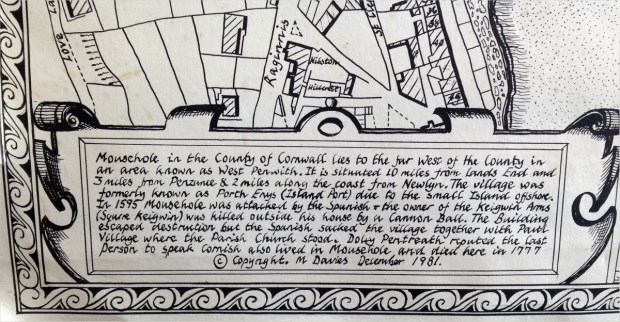 Love La
Raginnis
St Cle
Nilstom
Hillcrest
Mousehole in the County of Cornwall lies to the far West of the County in
an area known as West Penwith. It is situated 10 miles from Lands End and
3 miles from Penzance & 2 miles along the coast from Newlyn. The village was
formerly known as Porth Enys (Island Port) due to the small Island offshore.
In 1595 Mousehole was attacked by the Spanish & the owner of the Keigwin Arms
(Squire Keigwin) was killed outside his house by a Cannon Ball. The Building
escaped destruction but the Spanish sacked the village together with Paul
Village where the Parish Church stood. Dolly Pentreath reputed the last
Person to speak Cornish also lived in Mousehole and died here in 1777
© Copyright. M Davies December 1981.